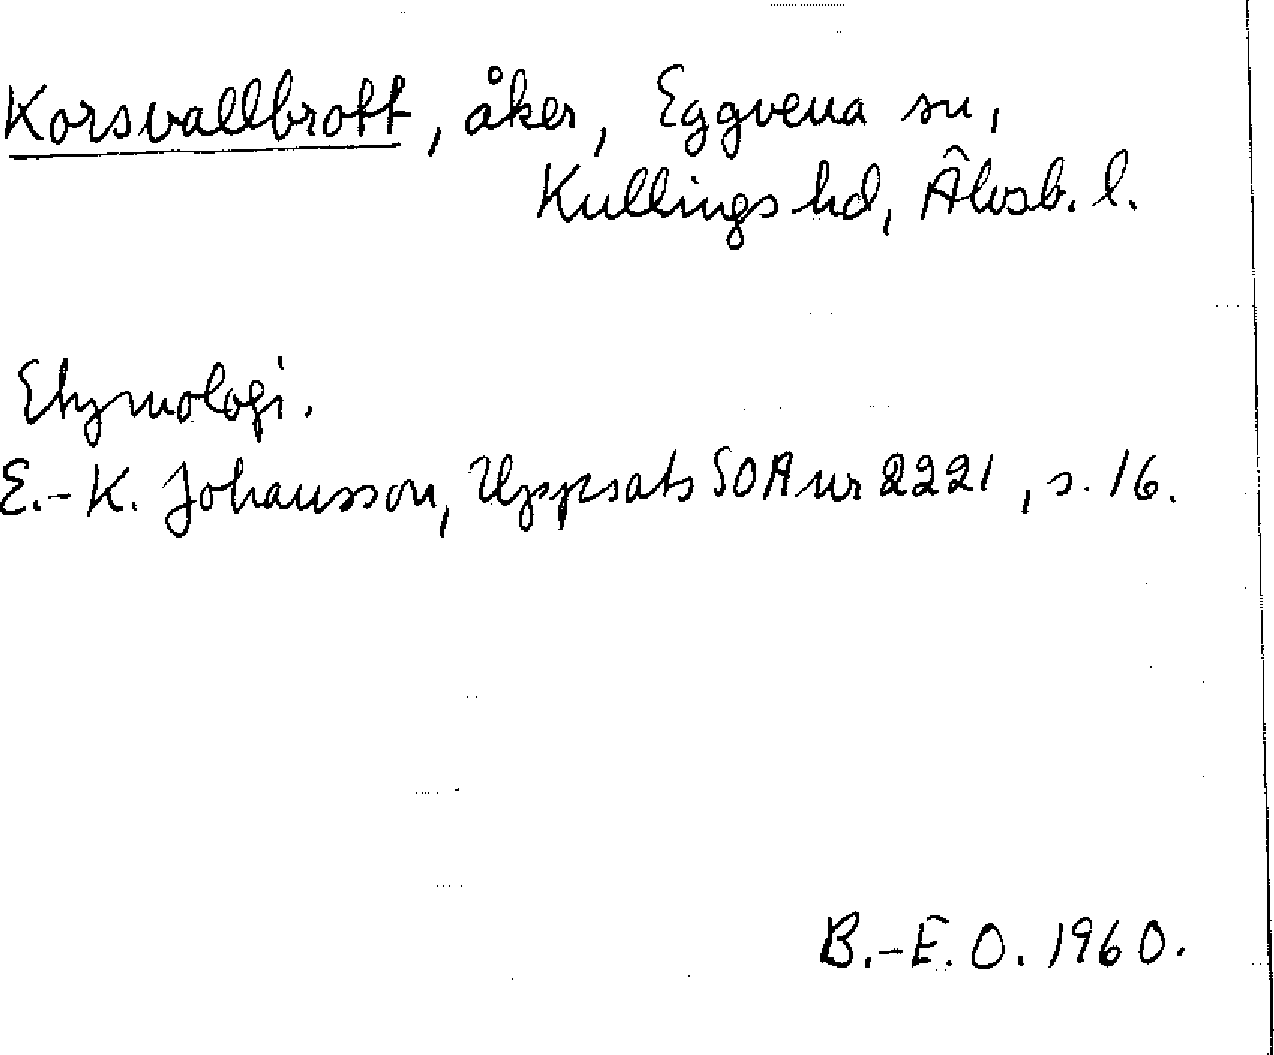 Korsvallbrott, åker, Eggvena sn,
Kullings hd, Älvsb. l.
Etymologi.
E.-K. Johansson, Uppsats SOA nr 2221, s. 16.
B.-E. O. 1960.